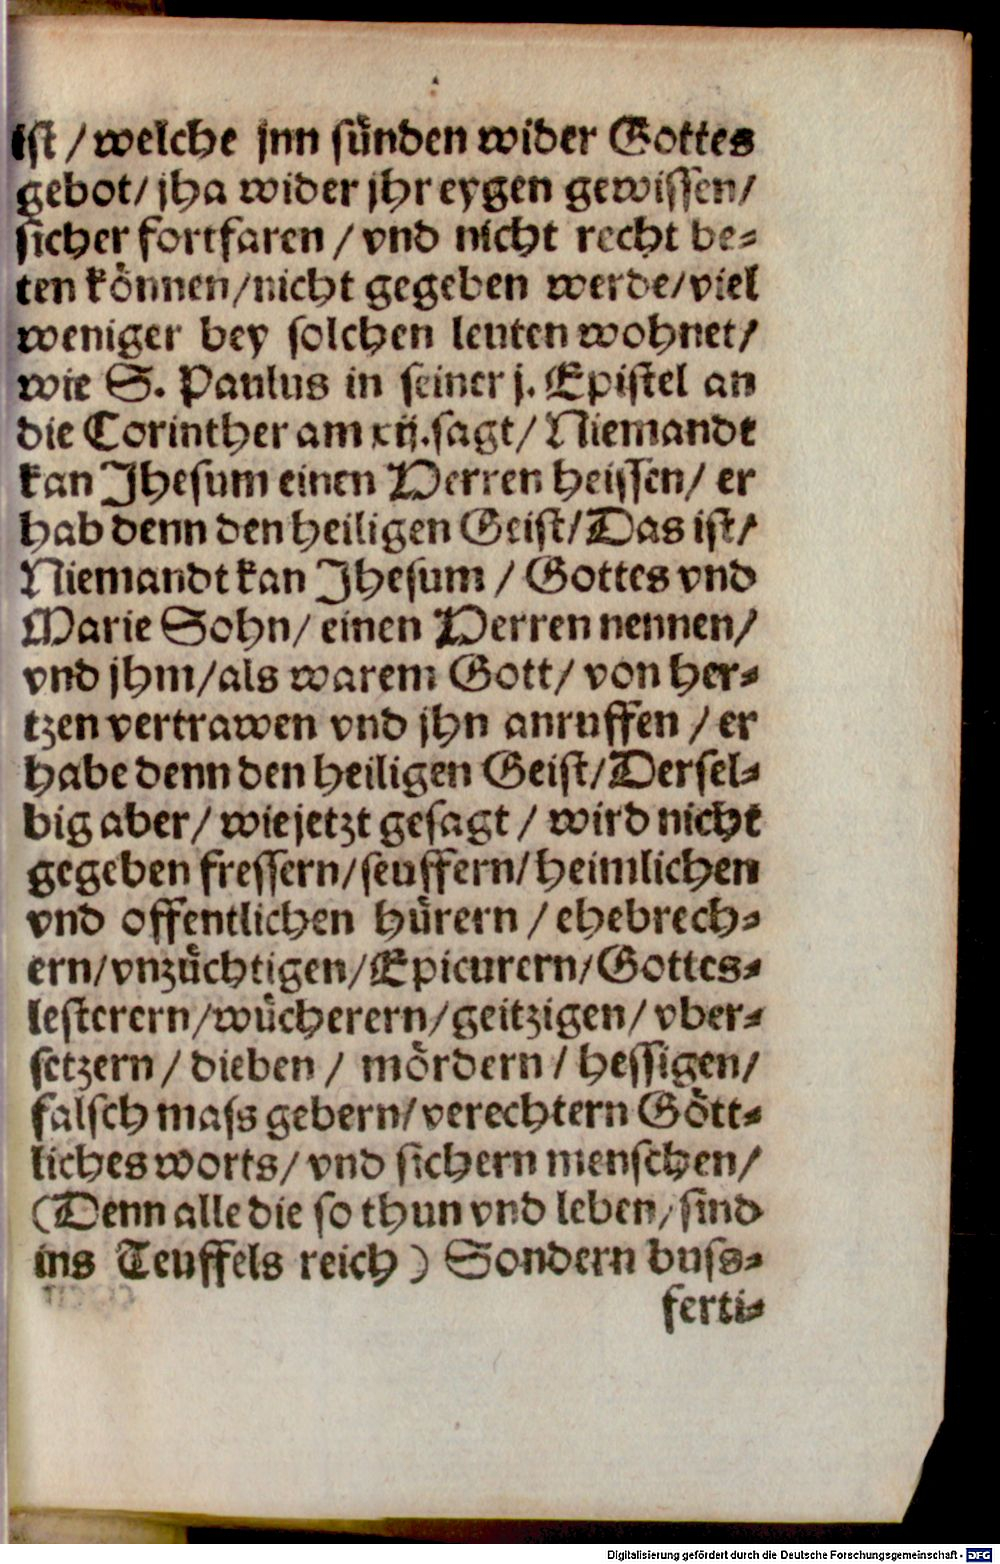 ist / welche jnn sünden wider Gottes
gebot / jha wider jhr eygen gewissen /
sicher fortfaren / vnd nicht recht be⸗
ten können / nicht gegeben werde / viel
weniger bey solchen leuten wohnet /
wie S. Paulus in seiner j. Epistel an
die Corinther am xij. sagt / Niemandt
kan Jhesum einen Herren heissen / er
hab denn den heiligen Geist / Das ist /
Niemandt kan Jhesum / Gottes vnd
Marie Sohn / einen Herren nennen /
vnd jhm / als warem Gott / von her⸗
tzen vertrawen vnd jhn anruffen / er
habe denn den heiligen Geist / Dersel⸗
big aber / wie jetzt gesagt / wird nicht
gegeben fressern / seuffern / heimlichen
vnd offentlichen hürern / ehebrech⸗
ern / vnzüchtigen / Epicurern / Gottes⸗
lesterern / wücherern / geitzigen / vber⸗
setzern / dieben / mördern / hessigen /
falsch mass gebern / verechtern Gött⸗
liches worts / vnd sichern menschen /
(Denn alle die so thun vnd leben / sind
ins Teuffels reich) Sondern buss⸗
ferti⸗
Digitalisierung gefördert durch die Deutsche Forschungsgemeinschaft - DFG